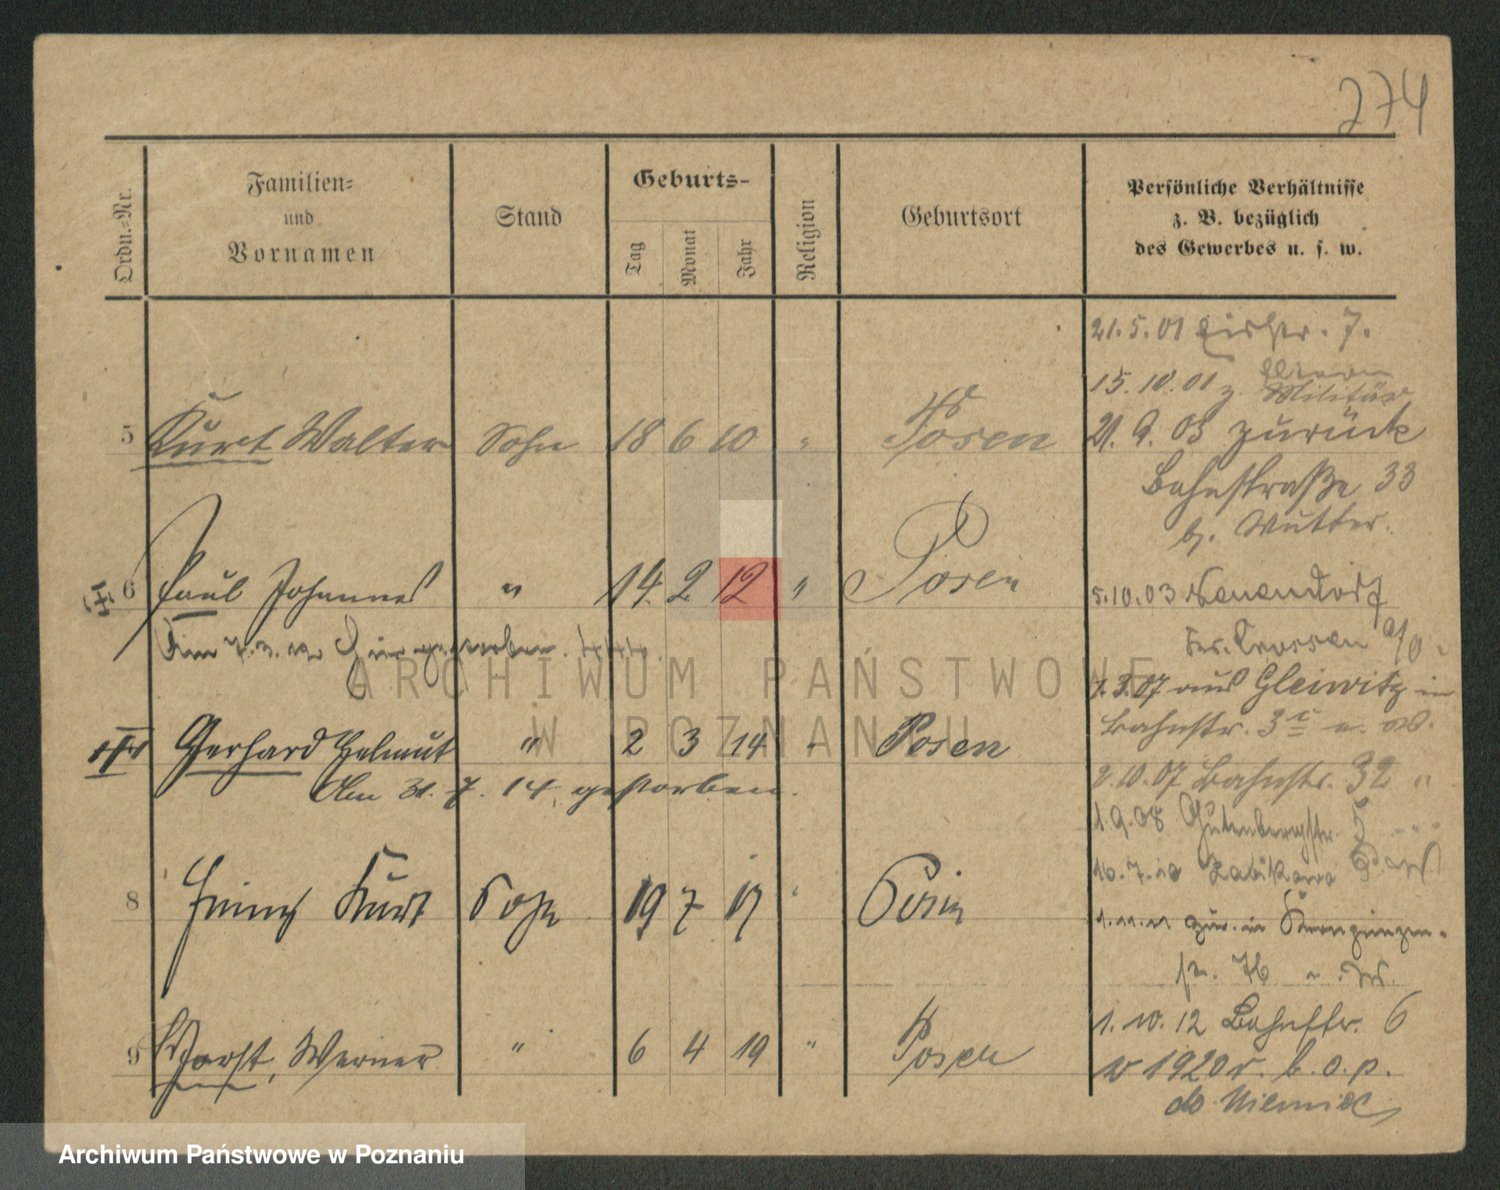 274
Ordn.-Nr.
Familien-
und
Vornamen
Stand
Geburts-
Tag
Monat
Jahr
Religion
Geburtsort
Persönliche Verhältnisse
z. B. bezüglich
des Gewerbes u. s. w.
5 Kurt Walter Sohn 18 6 10 " Posen
6 Paul Johannes " 14 2 12 " Posen
Am 7.3.12 gestorben.
Gerhard Helmut " 2 3 14 " Posen
Am 31. 7. 14. gestorben.
8 Heinz Kurt Sohn 19 7 17 " Posen
9 Horst, Werner " 6 4 19 " Posen
21. 5. 01 7.
15. 10. 01 z. Militär
21. 9. 03 zurück
Bahnstraße 33
b. Mutter.
5.10.03
Crossen a/O.
07 aus Gleiwitz in
Bahnstr. 3
2.10.07 Bahnstr. 32 "
1.9.08 Gutenbergstr. 5
16.7.10
1.11.11 zur. in Kronprinzen-
str. 76
1. 10. 12 Bahnstr. 6
w 1920 r. b. o. p.
do Niemiec
ARCHIWUM PAŃSTWOWE
W POZNANIU
Archiwum Państwowe w Poznaniu